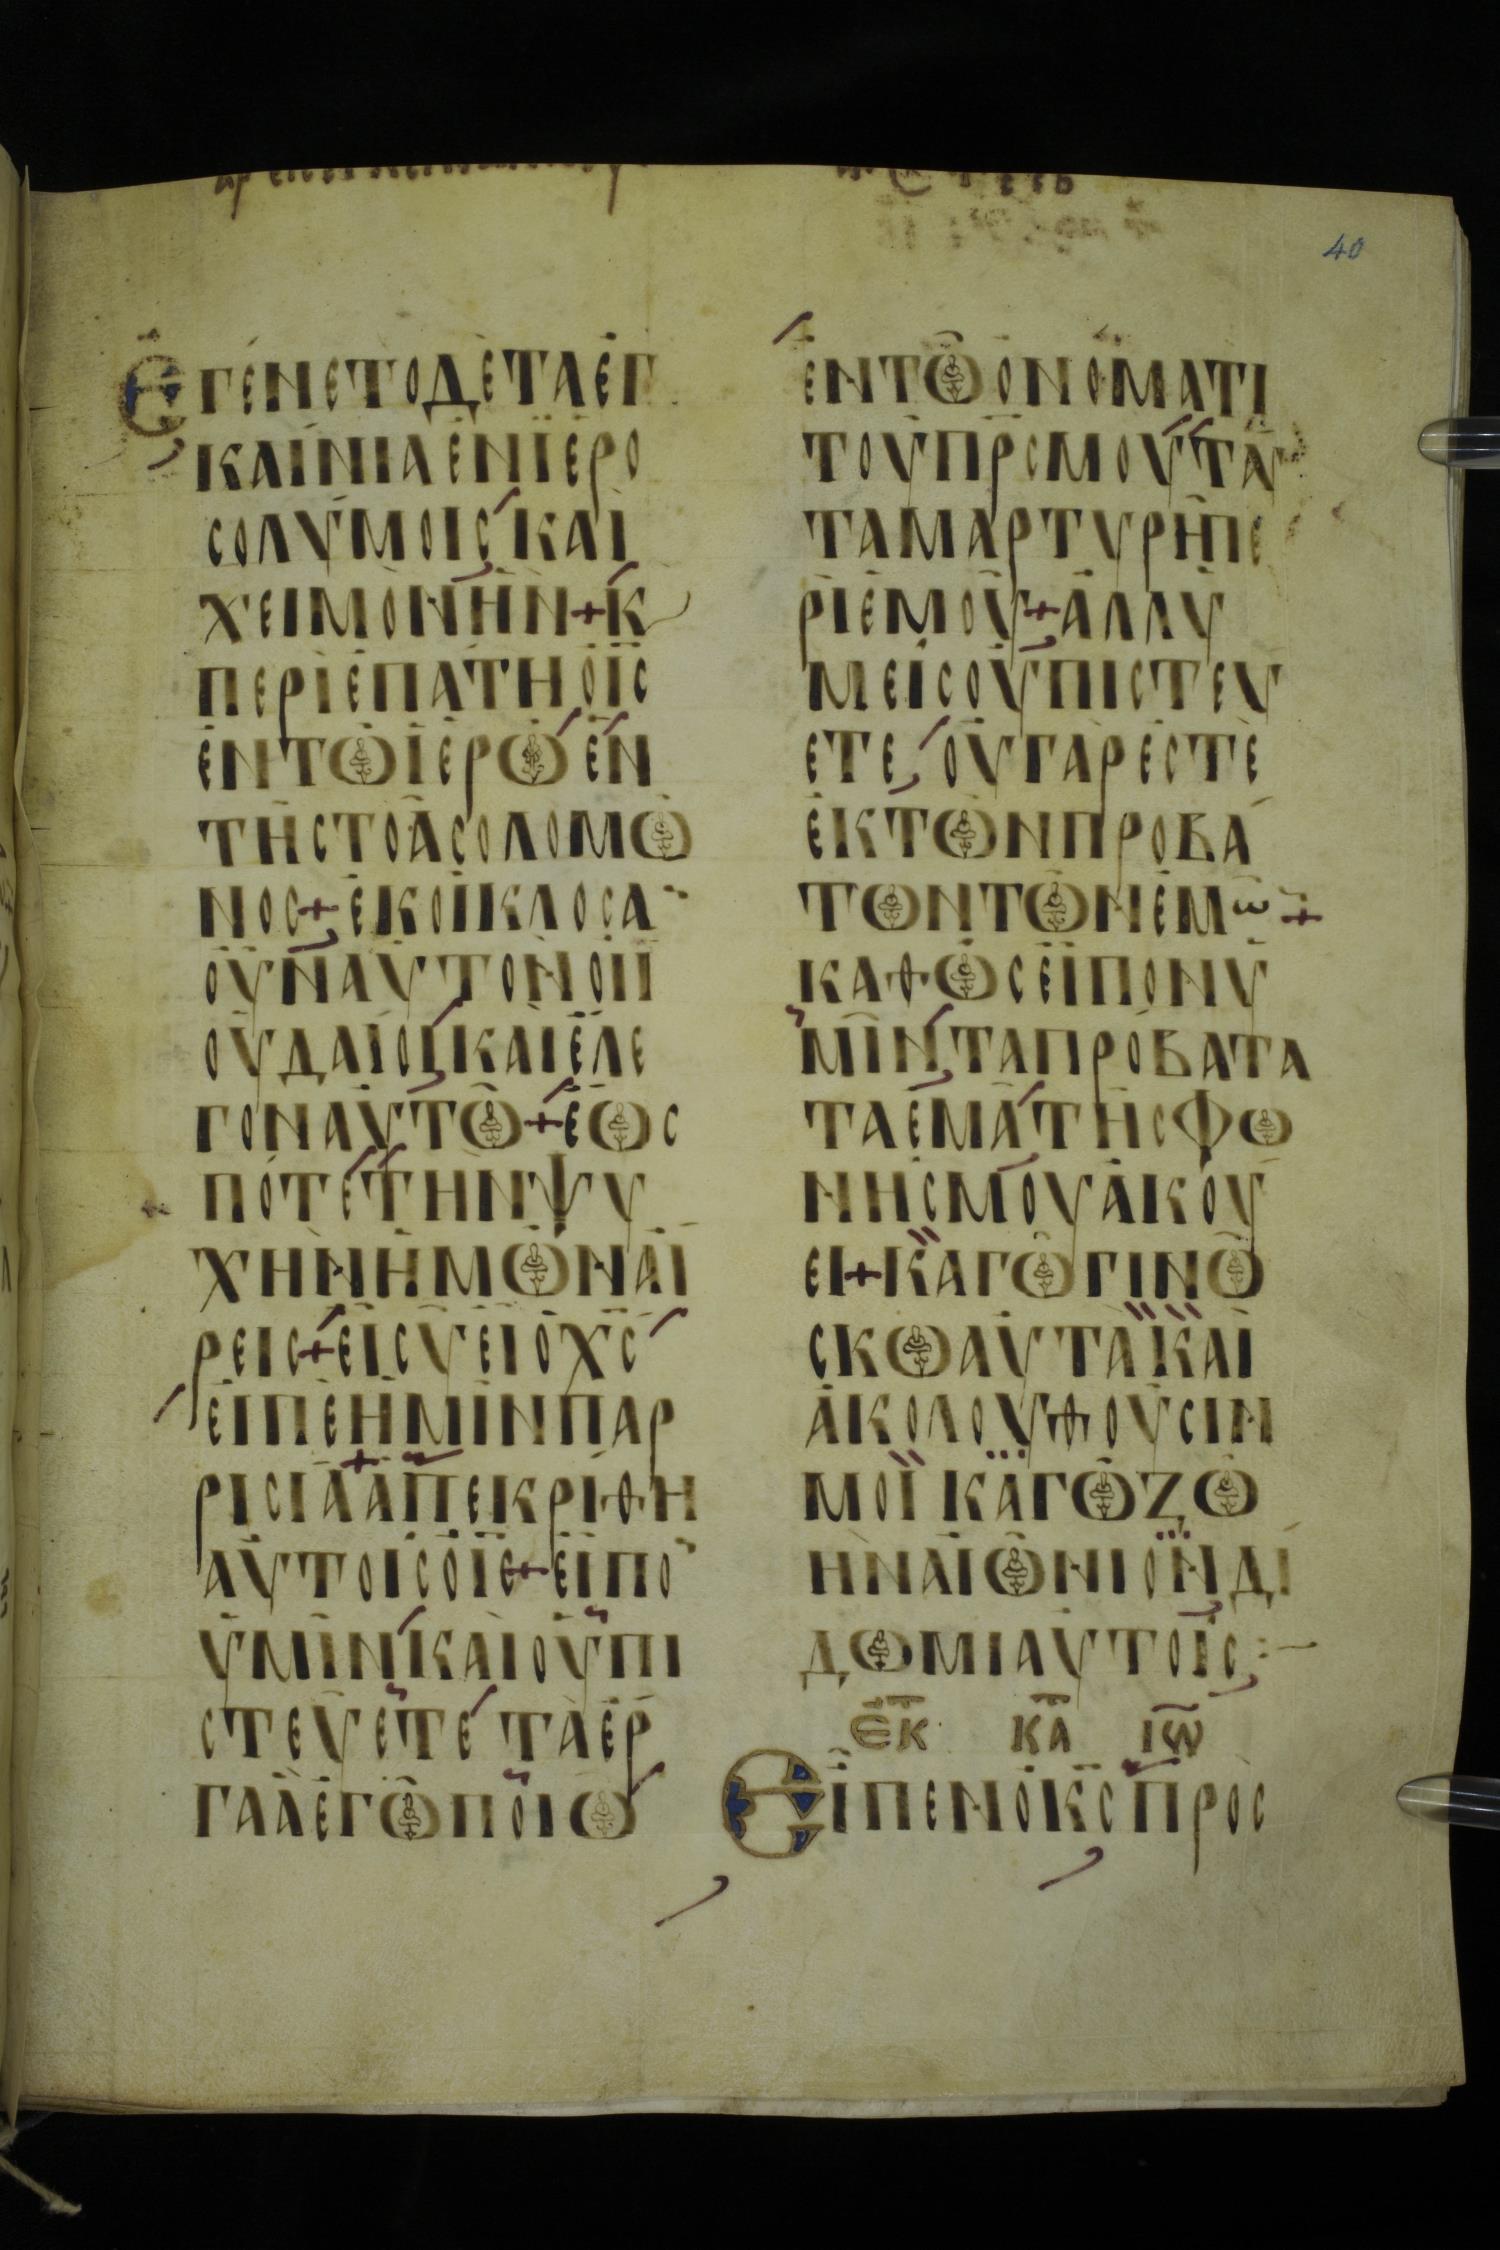 40
ΕΓΕΝΕΤΟΔΕΤΑΕΓ
ΚΑΙΝΙΑΕΝΪΕΡΟ
ΣΟΛΥΜΟΙΣΚΑΙ
ΧΕΙΜΟΝΗΝ+Κ
ΠΕΡΙΕΠΑΤΗΟΙΣ
ΕΝΤΩΙΕΡΩΕΝ
ΤΗΣΤΟΑΣΟΛΟΜΩ
ΝΟΣ+ΕΚΟΙΚΛΟΣΑ
ΟΥΝΑΥΤΟΝΟΙΪ
ΟΥΔΑΙΟΙΚΑΙΕΛΕ
ΓΟΝΑΥΤΩ+ΕΩΣ
ΠΟΤΕΤΗΝΨΥ
ΧΗΝΗΜΩΝΑΙ
ΡΕΙΣ+ΕΙΣΥΕΙΟΧΣ
ΕΙΠΕΗΜΙΝΠΑΡ
ΡΙΣΙΑ+ΑΠΕΚΡΙΘΗ
ΑΥΤΟΙΣΟΙΣ+ΕΙΠΟ
ΥΜΙΝΚΑΙΟΥΠΙ
ΣΤΕΥΕΤΕΤΑΕΡ
ΓΑΑΕΓΩΠΟΙΩ
ΕΝΤΩΟΝΟΜΑΤΙ
ΤΟΥΠΡΣΜΟΥΤΑΥ
ΤΑΜΑΡΤΥΡΗΠΕ
ΡΙΕΜΟΥ+ΑΛΛΥ
ΜΕΙΣΟΥΠΙΣΤΕΥ
ΕΤΕΟΥΓΑΡΕΣΤΕ
ΕΚΤΩΝΠΡΟΒΑ
ΤΩΝΤΩΝΕΜΩ+
ΚΑΘΩΣΕΙΠΟΝΥ
ΜΙΝΤΑΠΡΟΒΑΤΑ
ΤΑΕΜΑΤΗΣΦΩ
ΝΗΣΜΟΥΑΚΟΥ
ΕΙ+ΚΑΓΩΓΙΝΩ
ΣΚΩΑΥΤΑΚΑΙ
ΑΚΟΛΟΥΘΟΥΣΙΝ
ΜΟΙΚΑΓΩΖΩ
ΗΝΑΙΩΝΙΟΝΔΙ
ΔΩΜΙΑΥΤΟΙΣ:-
ΕΚ ΚΑ ΙΩ
ΕΙΠΕΝΟΚΣΠΡΟΣ